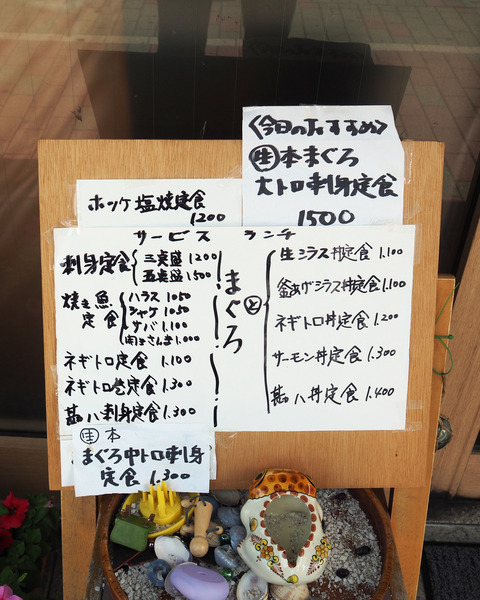 〈今日のおすすめ〉
㊤本まぐろ
大トロ刺身定食
1500
ホッケ塩焼定食
1200
サービス ランチ
刺身定食
三点盛 1200
五点盛 1500
焼き魚定食
ハラス 1050
シャケ 1050
サバ 1.100
開きさんま 1.000
ネギトロ定食 1.100
ネギトロ巻定食 1.300
甚八刺身定食 1.300
まぐろ
と
生シラス丼定食 1.100
釜あげシラス丼定食 1.100
ネギトロ丼定食 1.200
サーモン丼定食 1.300
甚八丼定食 1.400
生 本
まぐろ中トロ刺身
定食 1.300